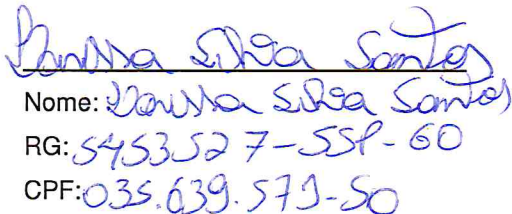 Silva Santos
Nome: Silva Santos
RG: 5453527-SSP-GO
CPF: 035.639.579-50